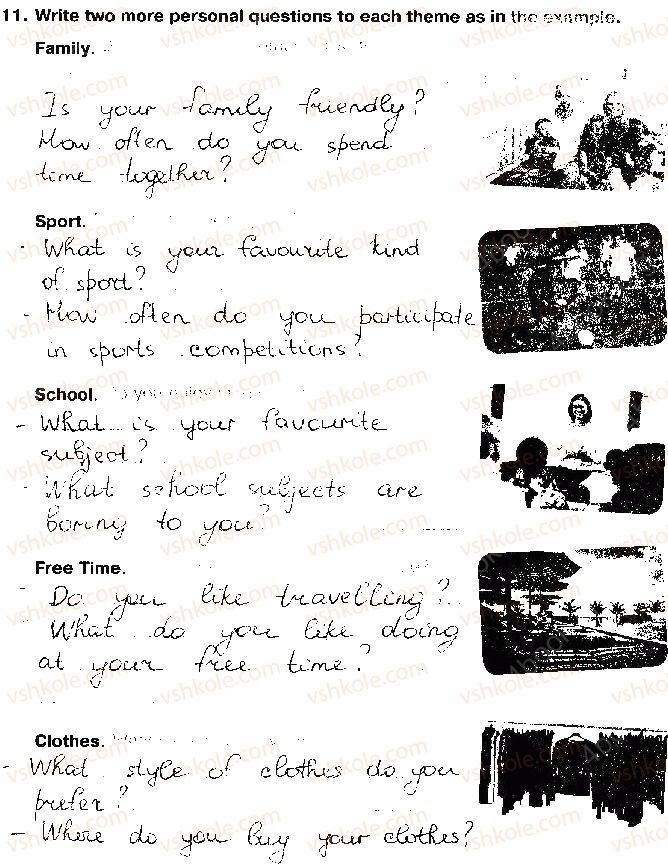 11. Write two more personal questions to each theme as in the example.
Family.
Is your family friendly?
How often do you spend
time together?
Sport.
- What is your favourite kind
of sport?
- How often do you participate
in sports competitions?
School.
- What is your favourite
subject?
- What school subjects are
boring to you?
Free Time.
- Do you like travelling?
What do you like doing
at your free time?
Clothes.
- What style of clothes do you
prefer?
- Where do you buy your clothes?
vshkole.com